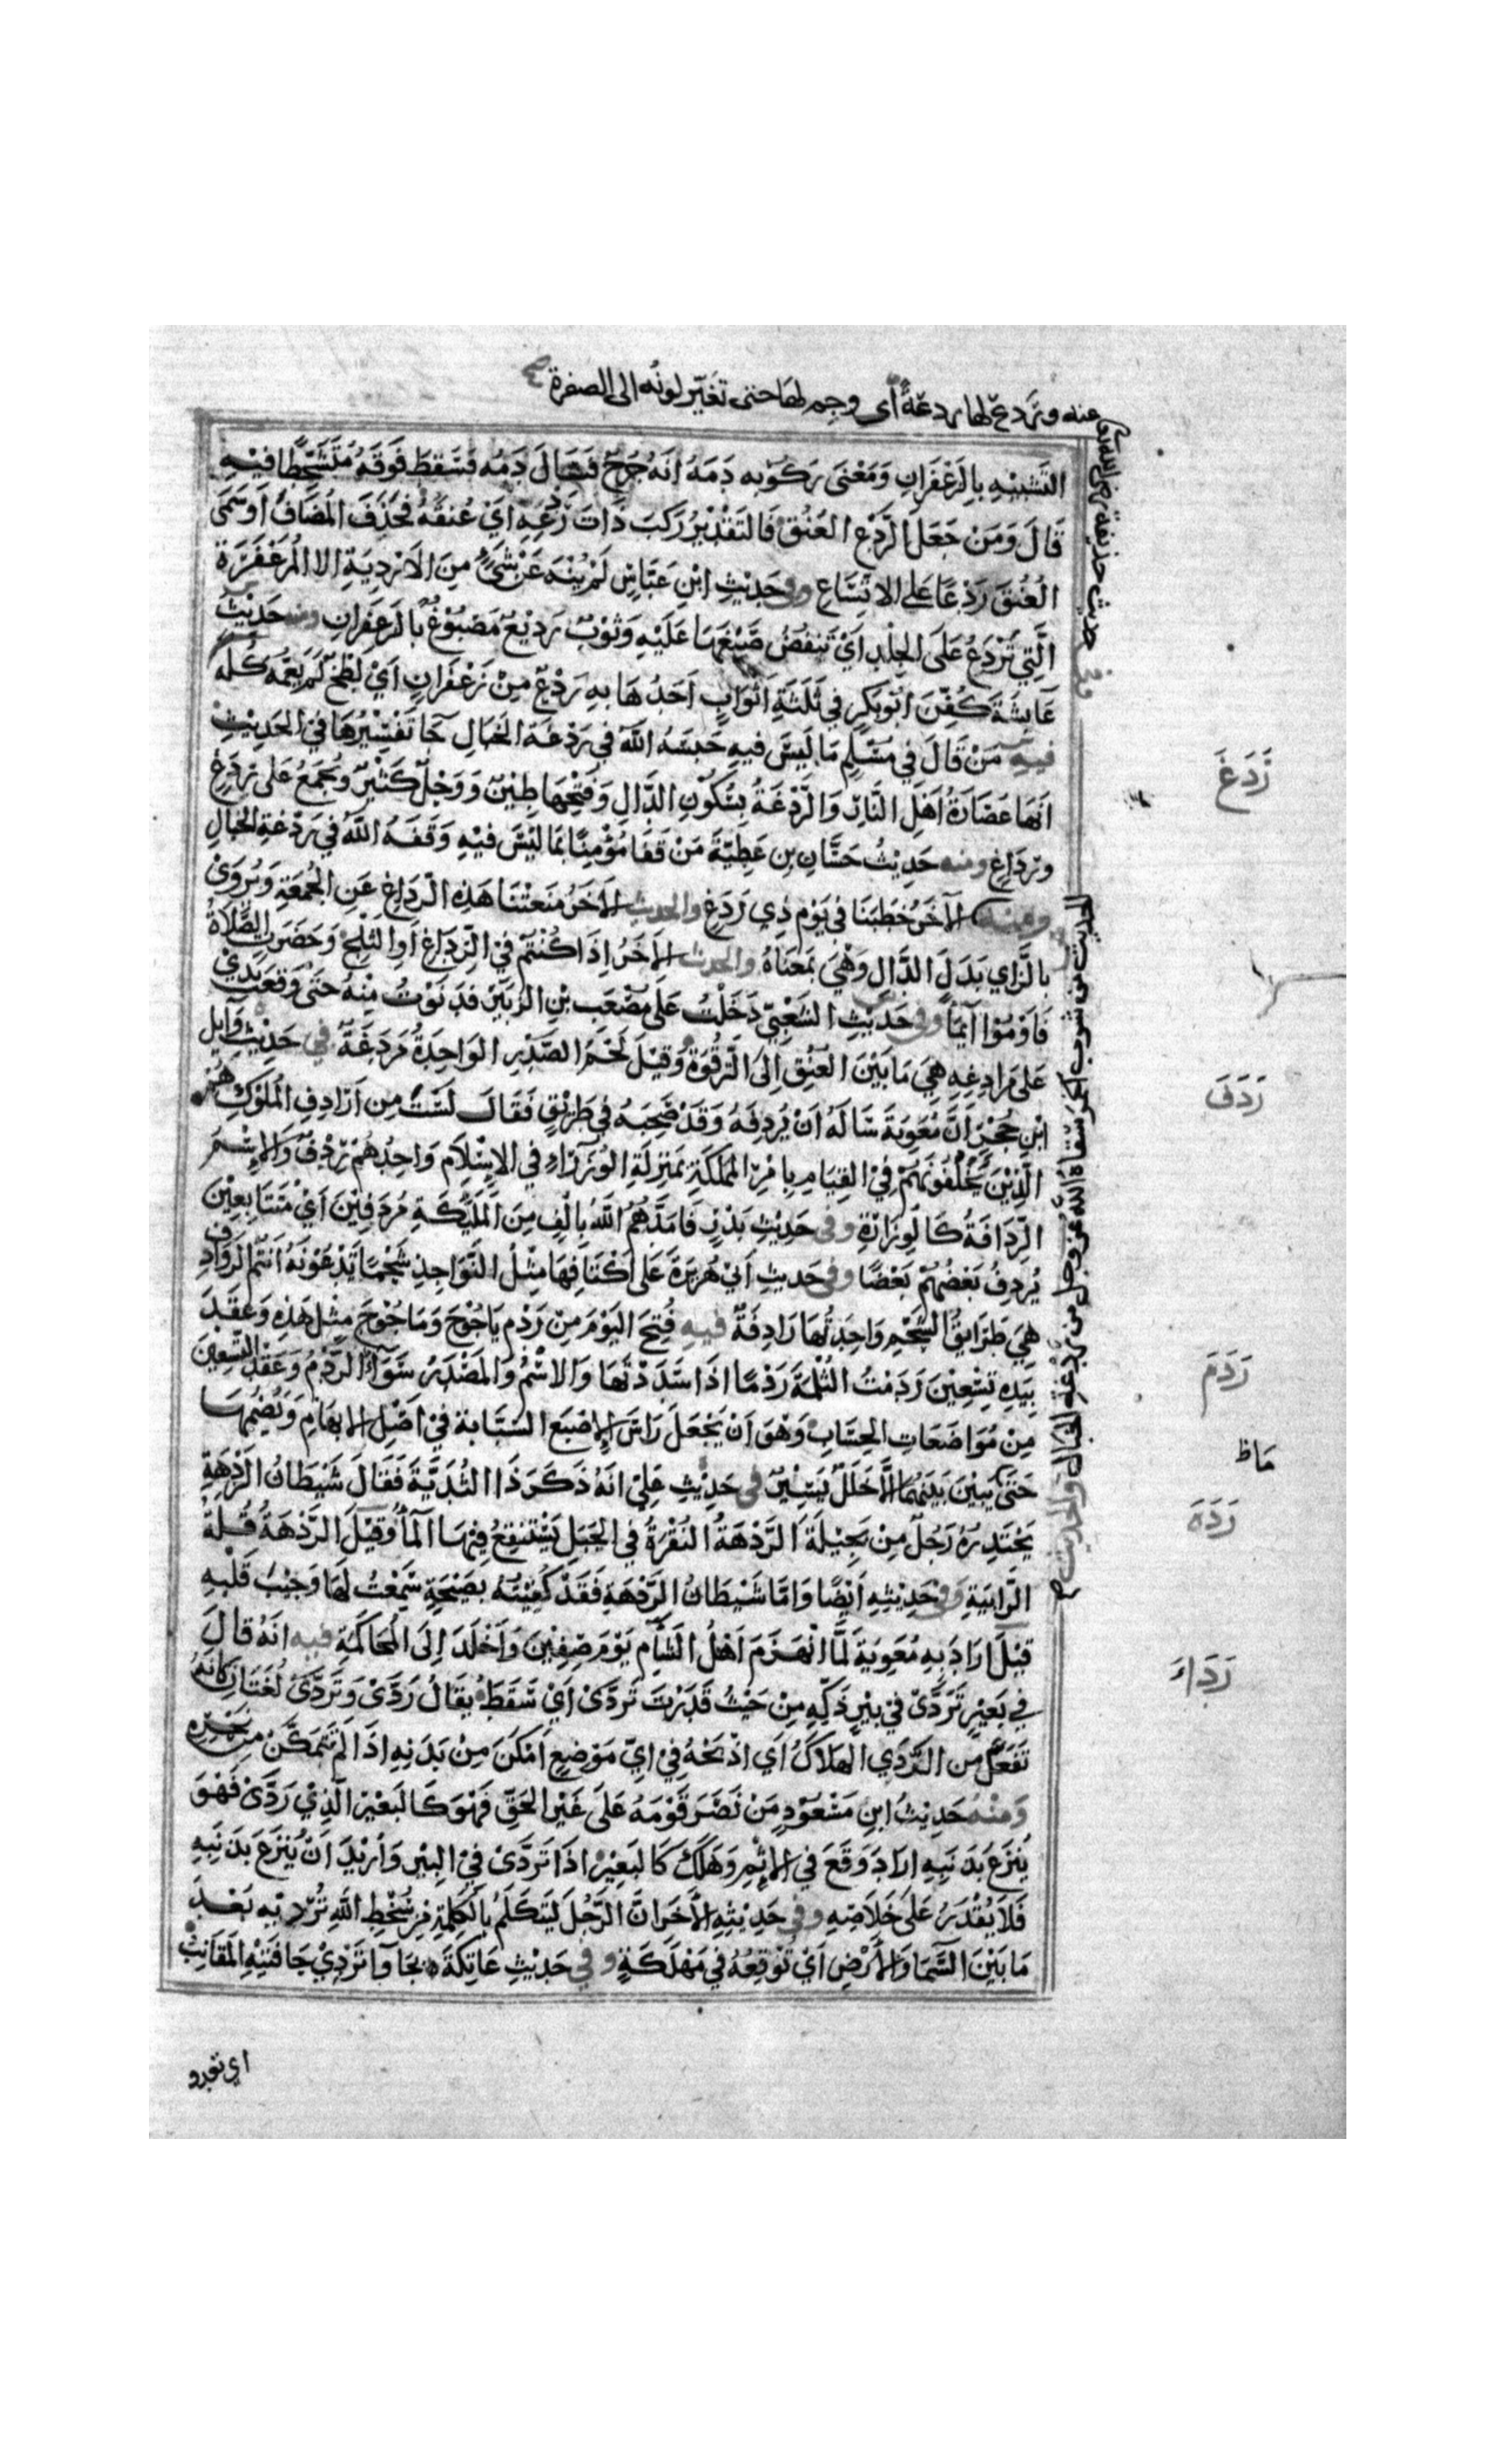 عنه وتردع لها ردعة أى وجم لها حتى تغيّر لونه الى الصفرة
التَّشبيْهِ بِالزَعْفَرَانِ وَمَعْنَى رَكُوْبِه دَمَهُ انَهُ جُرِحَ فَسَالَ دَمُه فَسَقطَ فَوقَهُ مُتَشَحِّطًا فيْهِ
قَالَ وَمَنْ جَعَلَ الرَّدْعَ العُنُقَ فَالتَقْدِيْرُ رَكبَ ذَاتَ رَدْعِهِ اَيْ عُنقَهُ فَحُذِفَ المُضَافُ اَوسَمَى
العُنُقَ رَدْعًا عَلى الاتِسَاعِ وفى حَدِيْثِ ابْنِ عَبَّاسٍ لَمْ يُنْهَ عَنْ شَيْءٍ مِنَ الاَرْدِيَةِ الا المُزَعْفَرَةِ
الَّتِي تَرْدَعُ عَلَى الجِلْدِ اَيْ تَنفضُ صَبْغَهَا عَلَيْهِ وَثوْبٌ رَدِيْعٌ مَصْبُوْغٌ بالزَعفَرانِ ومنه حَدِيْثُ
عَايشَةَ كُفِّنَ ابُوبَكرٍ في ثَلثَةِ اَثوَابٍ اَحَدُهَا بِه رَدْعٌ مِنْ زَعْفَرَانٍ اَيْ لَطْخٌ لَم يَعُمَّه كُلَّه
فيهِ مَنْ قَالَ في مُسْلِمٍ مَا لَيسَ فيهِ حَبسَهُ اللهُ في رَدْغَة الخَبَالِ جَا تَفْسِيْرُهَا في الحَدِيْثِ
اَنهَا عُصَارَةُ اَهْلِ النَّارِ وَالرَّدْغَةُ بِسُكُوْنِ الدَّالِ وَفَتْحِهَا طِيْنٌ وَوَحْلٌ كَثيْرٌ وَتُجمَعُ عَلى رَدَغٍ
ورِدَاغٍ ومنه حَدِيْثُ حَسَّانِ بنِ عَطِيّةَ مَنْ قَفَا مُؤْمِنًا بمَا ليْسَ فيْهِ وَقَفَهُ اللهُ في رَدْغةِ الخَبَالِ
ومنه الآخَرُ خَطَبَنَا في يَوْمٍ ذِي رَدَغٍ والحديث الاخَرُ مَنَعَتْنَا هَذِهِ الرِّدَاغُ عَنِ الجُمعَةِ وَيُروَىْ
بالزَّاي بَدَلَ الدَّالِ وَهْيَ بمَعنَاهُ والحديث الاخَرُ اذَا كُنْتُمْ فيْ الرِّدَاغِ اَوِ الثَلجِ وَحَضَرتِ الصَّلَاةُ
فَاَوْمُوْا ايْمَاءً وفى حَدِيْثِ الشَعْبِيّ دَخَلْتُ عَلى مُصْعَبِ بْنِ الزُبَيْرِ فدَنَوْتُ مِنْهُ حَتىْ وَقعَتْ يَدِي
عَلى مَرَادِغِهِ هِيَ مَا بَيْنَ العُنُقِ اِلىَ التَّرْقُوَةِ وَقِيْلَ لَحْمُ الصَّدْرِ الوَاحِدَةُ مَردَغَةٌ في حَدِيْثِ وَايِل
ابْنِ حُجْرٍ اَنَّ مُعٰوِيَةَ سَالَهُ اَنْ يُردِفَهُ وَقَدْ صَحِبَهُ في طَرِيْقٍ فَقَالَ لَسْتَ مِن اَرْدَافِ المُلُوْكِ هُمُ
الَّذِيْنَ يَخْلُفُوْنَهُمْ فيْ القِيَامِ بِاَمْرِ المملكَةِ بمَنزِلَةِ الوُزَرَاءِ في الاِسْلَامِ وَاحِدُهُمْ رِدْفٌ وَالاِسْمُ
الرِّدَافَةُ كَالوِزَارَةِ وفى حَدِيْثِ بَدْرٍ فَامَدَّهُمُ اللهُ بِالْفٍ مِنَ المَلٰئِكَةِ مُرْدَفِيْنَ اَيْ مُتَتَابِعِيْنَ
يُردِفُ بَعْضُهُمْ بَعْضًا وفى حَديثِ اَبيْ هُرَيرَةَ عَلى اكْتَافِهَا مِثْلُ النَّوَاجِذِ شَحْمًا تَدْعُوْنَهُ اَنْتُم الرَوَادِفَ
هِيَ طَرَايِقُ الشَّحْمِ وَاحِدَتُهَا رَادِفَةٌ فيه فُتِحَ اليَوْمَ مِنْ رَدْمِ يَاجُوْجَ وَمَاجُوْجَ مِثْلُ هَذِهِ وَعَقَدَ
بِيَدِهِ تِسْعِيْنَ رَدَمْتُ الثُلْمَةَ رَدْمًا اذَا سَدَدْتَهَا وَالاسْمُ وَالمَصْدَرُ سَوَاءٌ الرَّدْمُ وَعَقْدُ التِّسْعِيْنَ
مِنْ مُوَاضَعَاتِ الحِسَابِ وَهْوَ اَنْ يَجْعَلَ رَاسَ الاِصْبَعِ السَبَّابَةِ فيْ اَصْلِ الابهَامِ وَيَضُمهَا
حَتىْ لا يَبِيْنَ بَيْنَهُمَا الَّا خَلَلٌ يَسِيْرٌ في حَدِيْثِ عَليٍّ انَهُ ذَكرَ ذَا الثُدَيَّةَ فَقَالَ شَيْطَانُ الرَدْهَةِ
يَحْتَدِرُهُ رَجُلٌ مِنْ بَجِيْلَةَ اَلرَّدْهَةُ النُقْرَةُ في الجَبَلِ يَسْتَنْقِعُ فِيْهَا المَاءُ وَقِيْلَ الرَّدْهَةُ قُلَّةُ
الرَّابِيَةِ وفى حَدِيْثِهِ اَيْضًا وَامَّا شَيْطَانُ الرَّدْهَةِ فَقَدْ كُفِيْتُه بِصَيْحَةٍ سَمِعْتُ لهَا وَجِيْبَ قَلْبِهِ
قِيْلَ ارَادَ بِهِ مُعٰوِيَةَ لَمَّا انْهَزَمَ اَهْلُ الشَّامِ يَوْمَ صِفِّيْنَ وَاَخْلَدَ اِلىَ المُحَاكَمَةِ فيه انَهُ قَالَ
في بَعِيْرٍ تَرَدَّىْ في بيْرٍ ذَكِّهِ مِنْ حَيْثُ قَدَرْتَ تَرَدَّىْ اَيْ سَقَطَ يقَالُ رَدَىْ وَتَرَدَّىْ لُغَتَانِ كَانهُ
تَفَعَّلَ من الرَّدَي الهَلاكُ اَي اذْبَحْهُ فيْ ايِّ مَوْضِعٍ اَمْكَنَ مِنْ بَدَنِهِ اذَا لَمْ تَتَمَكَّنْ مِنْ نَحْرِهِ
وَمنْهُ حَدِيْثُ ابنِ مَسْعُوْدٍ مَنْ نَصَرَ قَوْمَهُ عَلىَ غَيْرِ الحَقِّ فَهْوَ كَالبَعِيْرِ الَّذِيْ رَدَّىْ فَهْوَ
يُنْزَعُ بذَنَبِهِ ارَادَ وَقَعَ في الاِثْمِ وَهَلَكَ كَالبَعِيْرِ اذَا تَرَدَّىْ فيْ البِيْرِ وَاُرِيْدَ انْ يُنزَعَ بذَنَبِهِ
فَلَا يُقْدَرُ عَلىَ خَلَاصِهِ وفى حَدِيْثِهِ الاخَرِ انَّ الرَّجُلَ لَيَتَكَلَّمُ بِالكَلِمَةِ مِنْ سُخْطِ اللهِ تُرْدِيْهِ بُعْدَ
مَا بَيْنَ السَّمَا وَالاَرْضِ اَيْ تُوْقِعُهُ فيْ مَهْلَكَةٍ وفي حَدِيْثِ عَاتِكَةَ بجَاْوَا تَرْدِيْ حَافَتَيْهِ المَقَانِبُ
اي تعدو
الحديث من شرب الخمر سقاه الله عزوجل من ردغة الخبال والحديث
رَدَغَ
رَدَفَ
رَدَمَ
رَدَهَ
رَدَاءَ